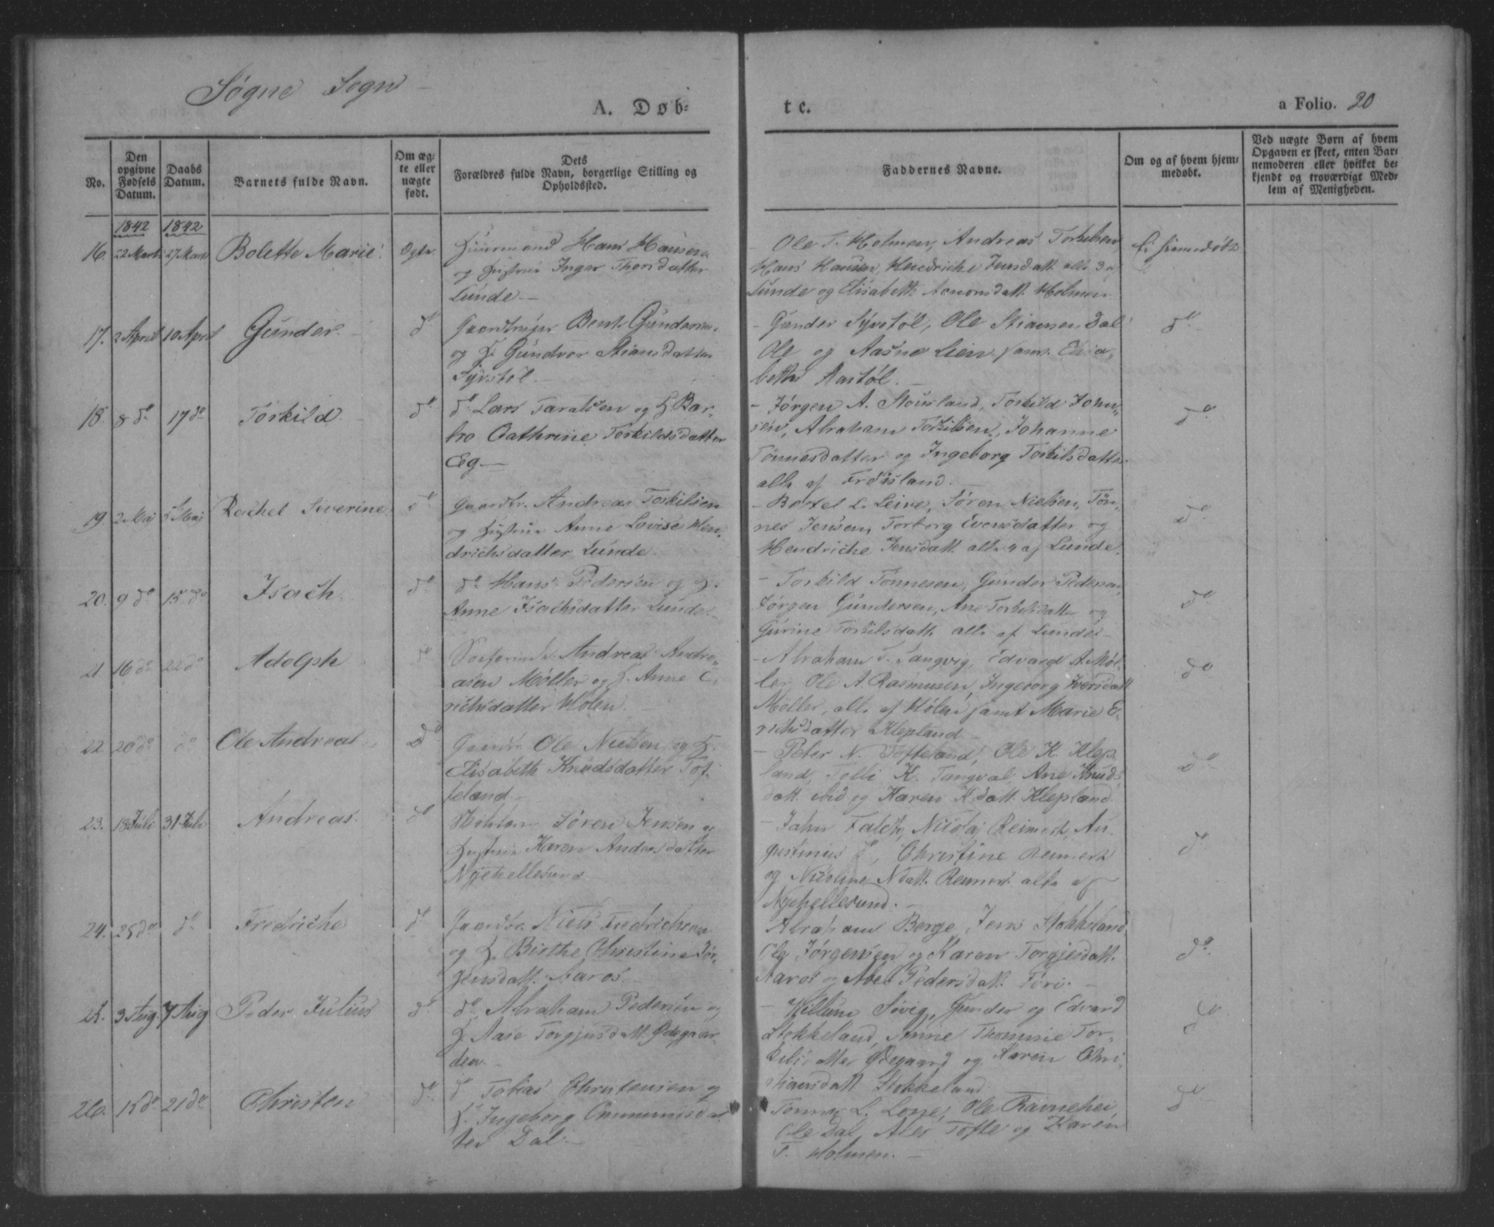 Søgne Sogn
A. Døb-
te.
a Folio. 20
No.
Den opgivne Fødsels Datum.
Daabs Datum.
Barnets fulde Navn.
Om ægte eller uægte født.
Dets Forældres fulde Navn, borgerlige Stilling og Opholdssted.
Faddernes Navne.
Om og af hvem hjemmedøbt.
Ved uægte Børn af hvem Opgaven er skeet, enten Barnemoderen eller hvilket bekjendt og troværdigt Medlem af Menigheden.
1842 1842
16. 22 Marts 27 Marts Bolette Marie Ægte Huusmand Hans Hansen
og Hustrue Inger Thorsdatter
Lunde
Ole T. Holmen, Andreas Torkilsen
Hans Hansen, Hendriche Jensdatt. alle 3 af
Lunde og Elisabeth Aanonsdatt. Holmen
Ei hjemmedøbt
17. 2 April 10 April Gunder do Bent Gundersen
og H. Gundvor Stiansdatter
Syvstøl
- Gunder Syvstøl, Ole Stiansen Dal
Ole og Aasne Leien samt Elisa-
beth Aastøl.
do
18. 8 do 17 do Torkild do do Lars Taraldsen og H. Bar-
bro Cathrine Torkildsdatter
Eeg
- Jørgen A. Stousland, Torkild John-
sen, Abraham Torkilsen, Johanne
Tønnesdatter og Ingeborg Torkilsdatter
alle af Frøisland.
do
19 2 Mai 5 Mai Rachel Severine do Gaardbr. Andreas Torkilsen
og Hustrue Anne Lovise Hen-
drichsdatter Lunde
- Søren Nielsen, Tøn-
nes Jensen, Torborg Evensdatter og
Hendriche Jensdatt. alle 4 af Lunde.
do
20. 9 do 15 do Isach do do Hans Pedersen og H.
Anne Isachsdatter Lunde
- Torkild Tønnesen, Gunder Pedersen,
Jørgen Gundersen, Ane Torkilsdatt. og
Gurine Torkilsdatt. alle af Lunde
do
21 16 do 22 do Adolph do Andreas Andre-
asen Møller og H. Anne E-
richsdatter Holen
- Abraham T. Tangvig, Edvard A. Møl-
ler, Ole A. Rasmusen, Ingeborg Iversdatt.
Møller, alle af Holen samt Marie E-
richsdatter Klepland
do
22 20 do do Ole Andreas do Gaardbr. Ole Nielsen og H.
Elisabeth Knudsdatter Tof-
teland
- Peter N. Tofteland, Ole K. Klep-
land, K. Tangval, Ane Knuds-
datt. ibid og Karen K.datt. Klepland
do
23. 13 Juli 31 Juli Andreas do Søren Jensen og
Hustrue Karen Andersdatter
Nyehellesund
- Jahn Falch, Nicolaj Reimers, Au-
gustinius do, Christine Reimers
og Nicoline N.datt. Reimers alle af
Nyehellesund.
do
24. 25 do do Fredriche do Gaardbr. Niels Fredrichsen
og H. Birthe Christine Jør-
gensdatt. Aaros
Abraham Berge, Jens Stokkeland,
Ole Jørgensen og Karen Torgjesdatt.
Aaros og Abel Pedersdatt. Føre.
do
25. 3 Aug 7 Aug Peder Julius do do Abraham Pedersen og
H. Aase Torgjusdatt. Ødegaar-
den
- Søvig, Gunder og Edvard
Stokkeland, Anne Thomine Tor-
kilsdatter Ødegaard og Karen Chri-
stiansdatt. Stokkeland
do
26. 15 do 21 do Christen do do Tobias Christensen og
H. Ingeborg Gunnuusdat-
ter Dal.
Tønnes L. Lone, Ole Ravnehei
Ole Dal, Tofte og Karen
T. Holmen.
do